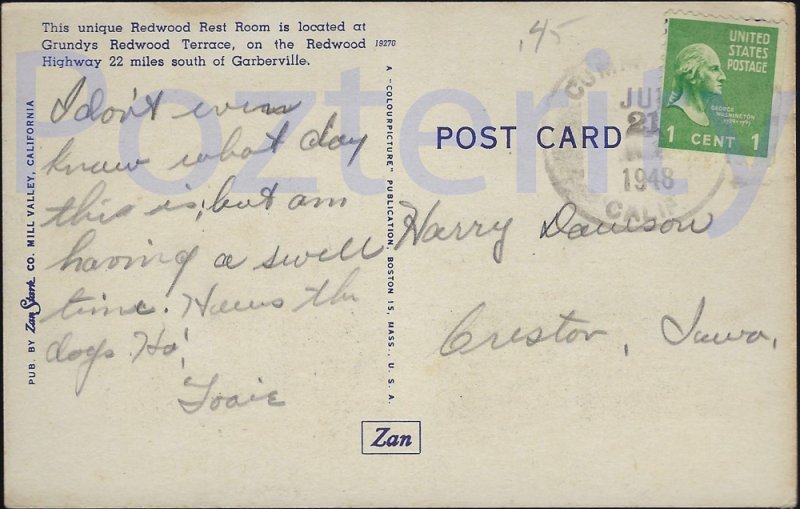 This unique Redwood Rest Room is located at
Grundys Redwood Terrace, on the Redwood
Highway 22 miles south of Garberville.
19270
.45
I don't even
know what day
this is, but am
having a swell
time. Hows the
dogs. Ha!
PUB. BY Zan Stark CO. MILL VALLEY, CALIFORNIA
A "COLOURPICTURE" PUBLICATION, BOSTON 15, MASS., U. S. A.
POST CARD
JU
21
1948
CALIF
UNITED
STATES
POSTAGE
GEORGE
WASHINGTON
1 CENT 1
Harry Davison
Creston, Iowa,
Zan
Pozterity